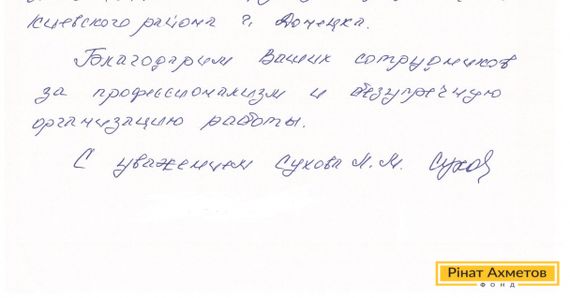 Киевского района г. Донецка.
Благодарим Ваших сотрудников
за профессионализм и безупречную
организацию работы.
С уважением Сухова Л.М. Сухов
Рінат Ахметов
ФОНД